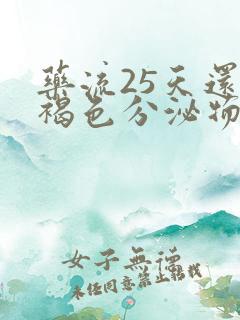 藥流25天還
褐色分泌物
女子無德
未任同意禁止轉載